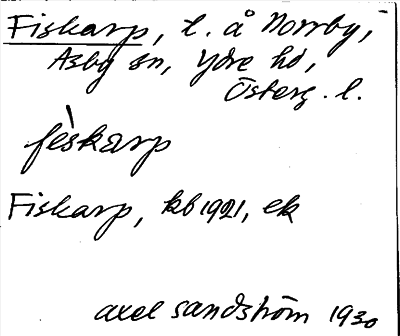 Fiskarp, t. å Norrby,
Asby sn, Ydre hd,
Österg. l.
fèskarp
Fiskarp, kb 1921, ek
Axel Sandström 1930